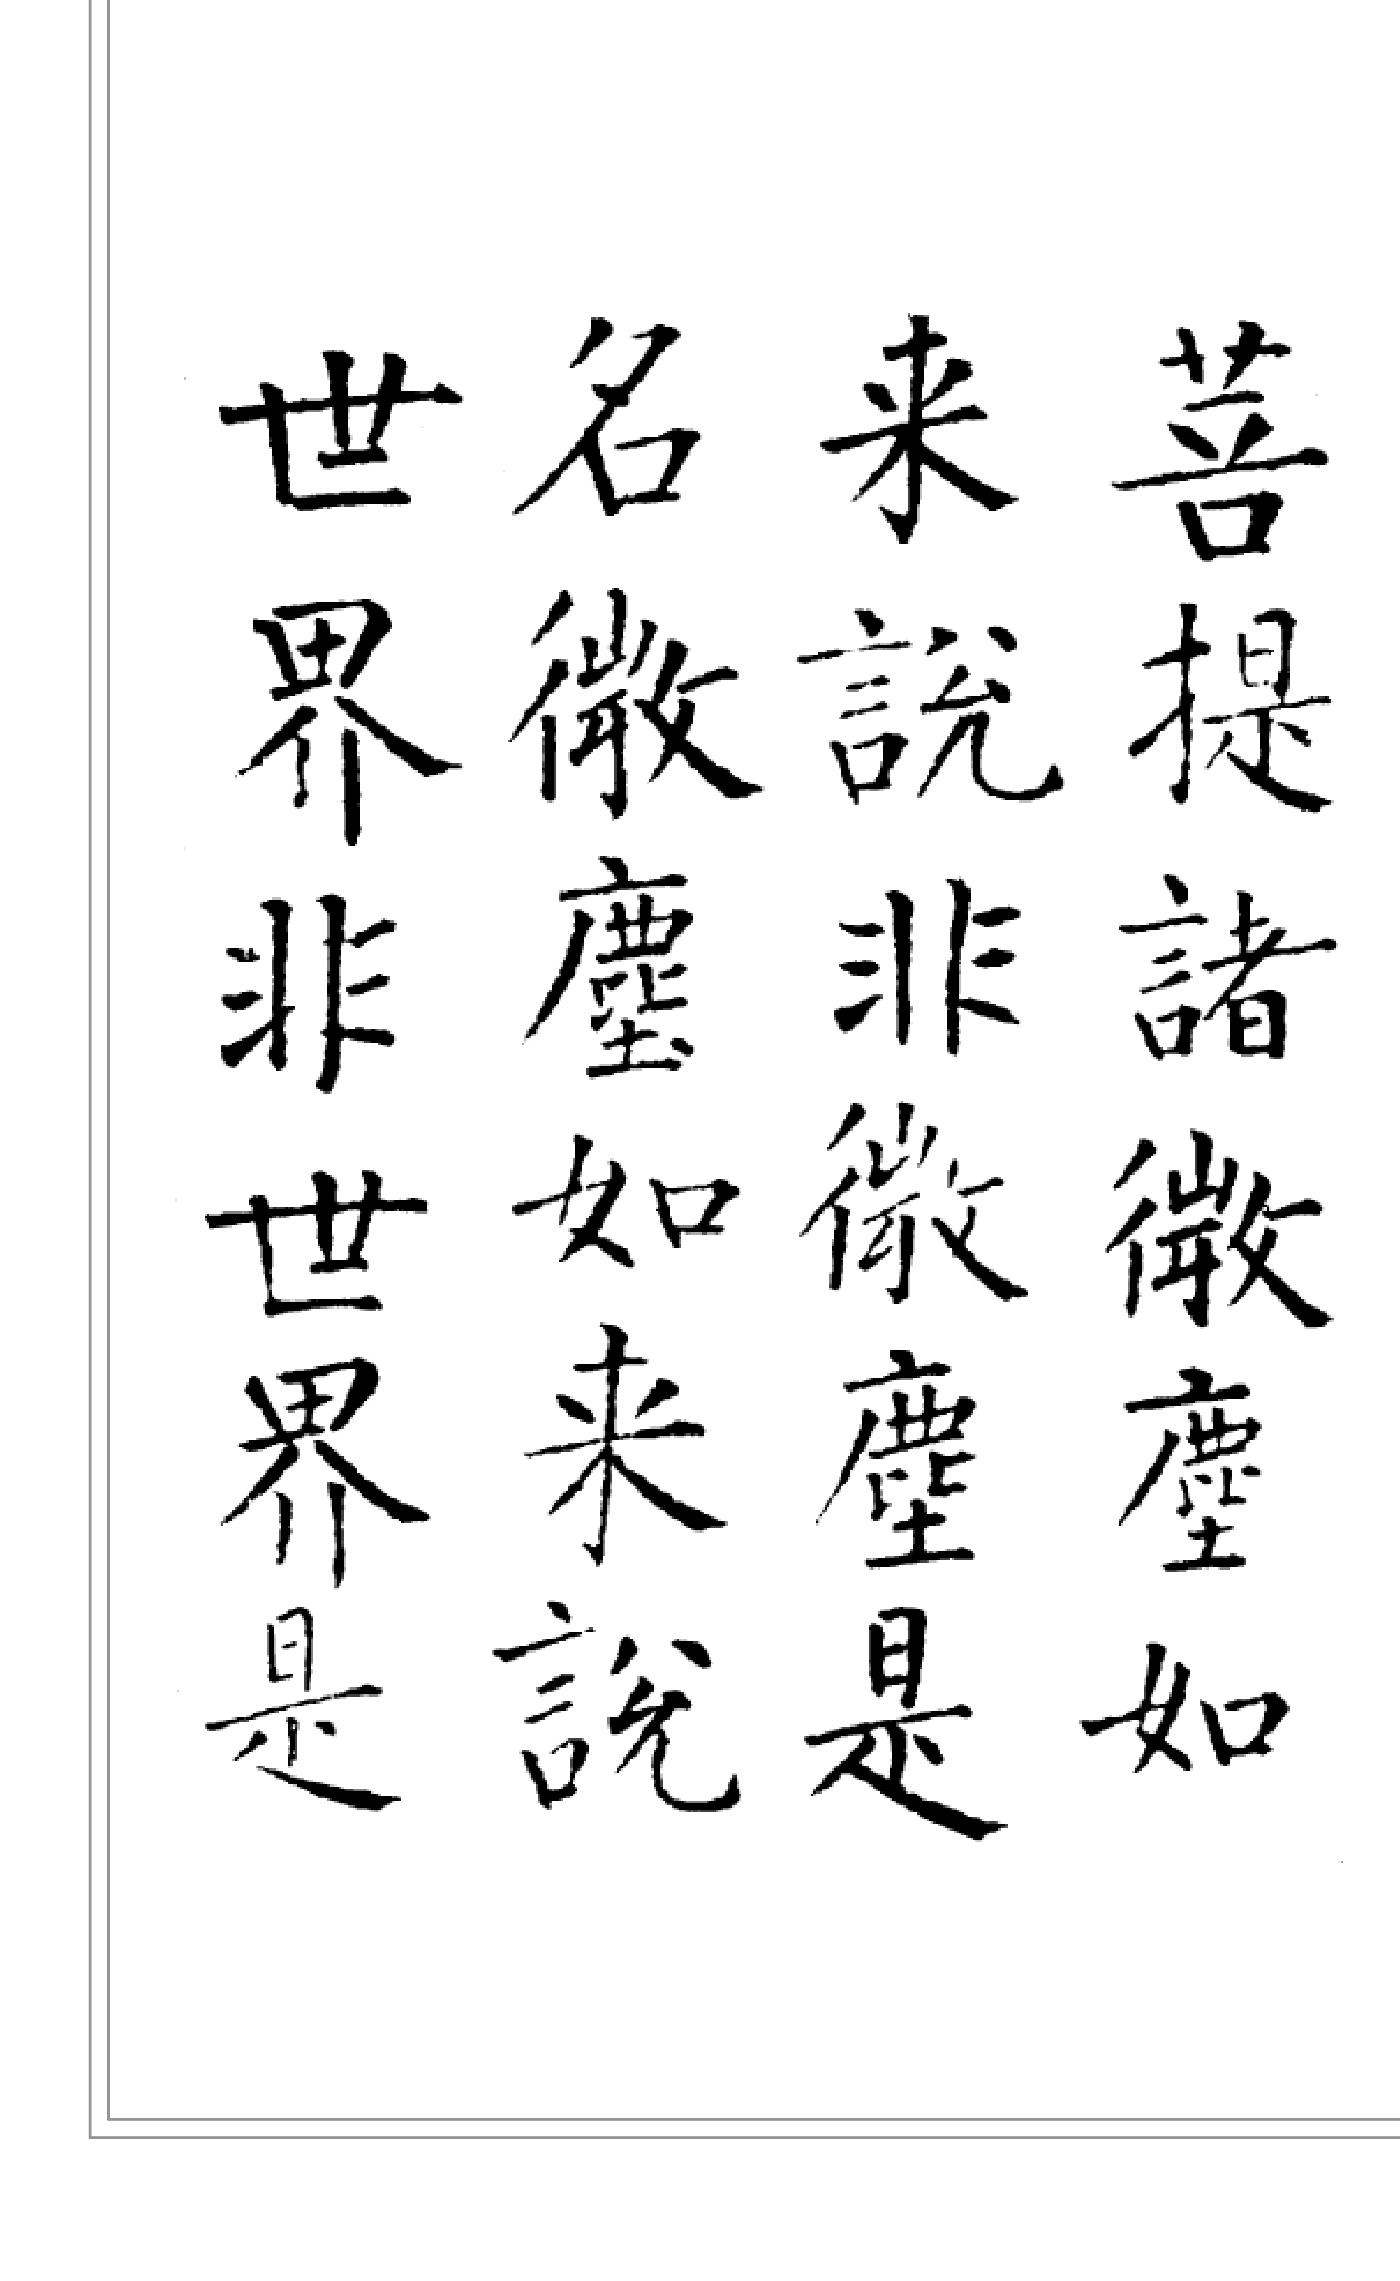 菩提諸微塵如
来説非微塵是
名微塵如来説
世界非世界是